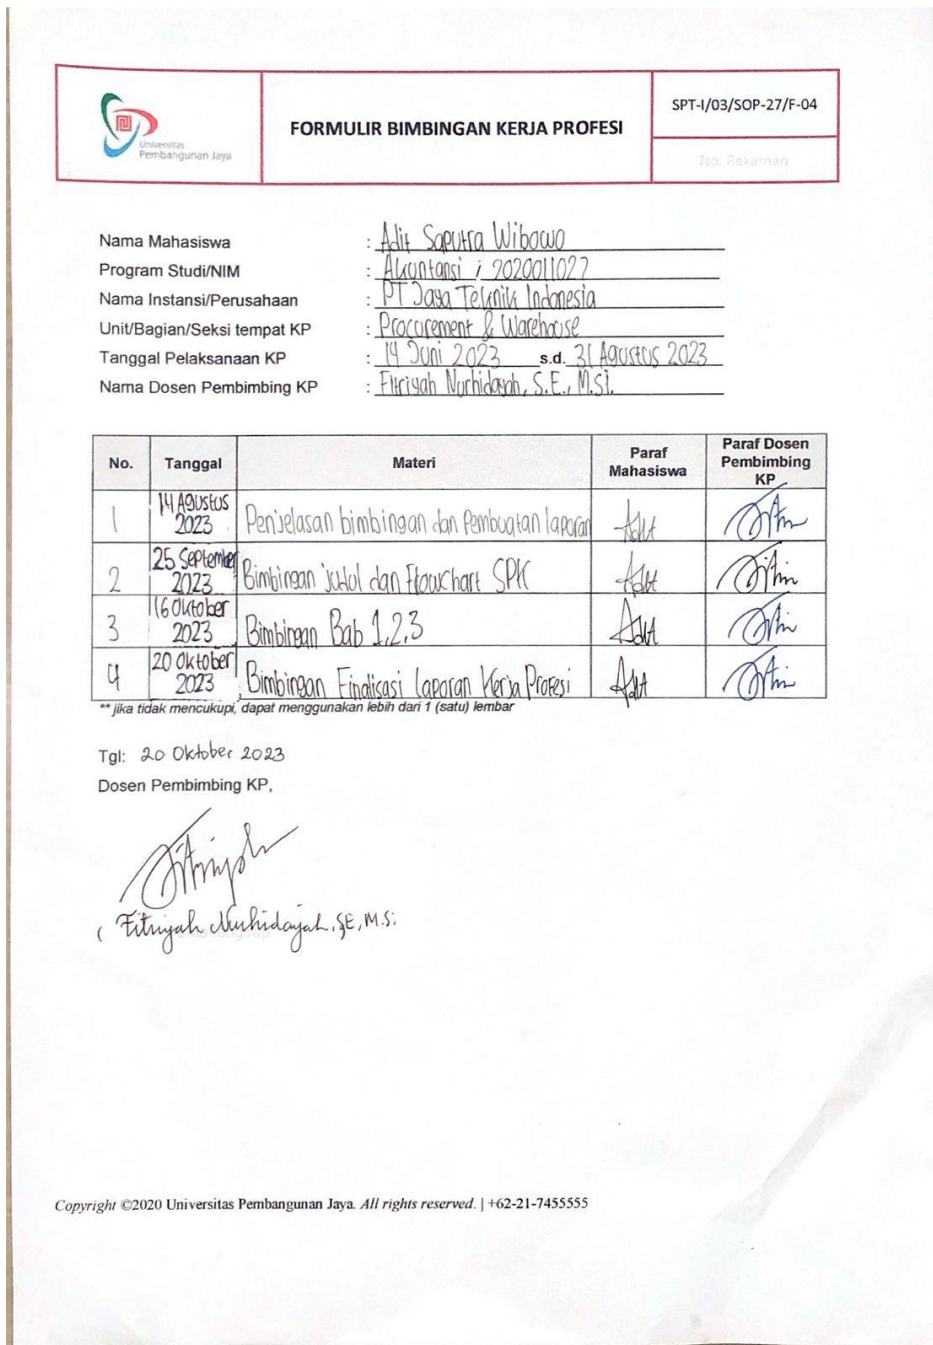 Universitas
Pembangunan Jaya
FORMULIR BIMBINGAN KERJA PROFESI
SPT-I/03/SOP-27/F-04
No. Rekaman
Nama Mahasiswa : Adit Saputra Wibowo
Program Studi/NIM : Akuntansi / 2020011027
Nama Instansi/Perusahaan : PT Jaya Teknik Indonesia
Unit/Bagian/Seksi tempat KP : Procurement & Warehouse
Tanggal Pelaksanaan KP : 14 Juni 2023 s.d. 31 Agustus 2023
Nama Dosen Pembimbing KP : Fitriyah Nurhidayah, S.E., M.Si.
No. Tanggal Materi Paraf Mahasiswa Paraf Dosen Pembimbing KP
1 14 Agustus 2023 Penjelasan bimbingan dan Pembuatan laporan Adit
2 25 September 2023 Bimbingan judul dan Flowchart SPK Adit
3 16 Oktober 2023 Bimbingan Bab 1,2,3 Adit
4 20 Oktober 2023 Bimbingan Finalisasi Laporan Kerja Profesi Adit
** jika tidak mencukupi, dapat menggunakan lebih dari 1 (satu) lembar
Tgl: 20 Oktober 2023
Dosen Pembimbing KP,
( Fitriyah Nurhidayah, SE, M.Si
Copyright ©2020 Universitas Pembangunan Jaya. All rights reserved. | +62-21-7455555